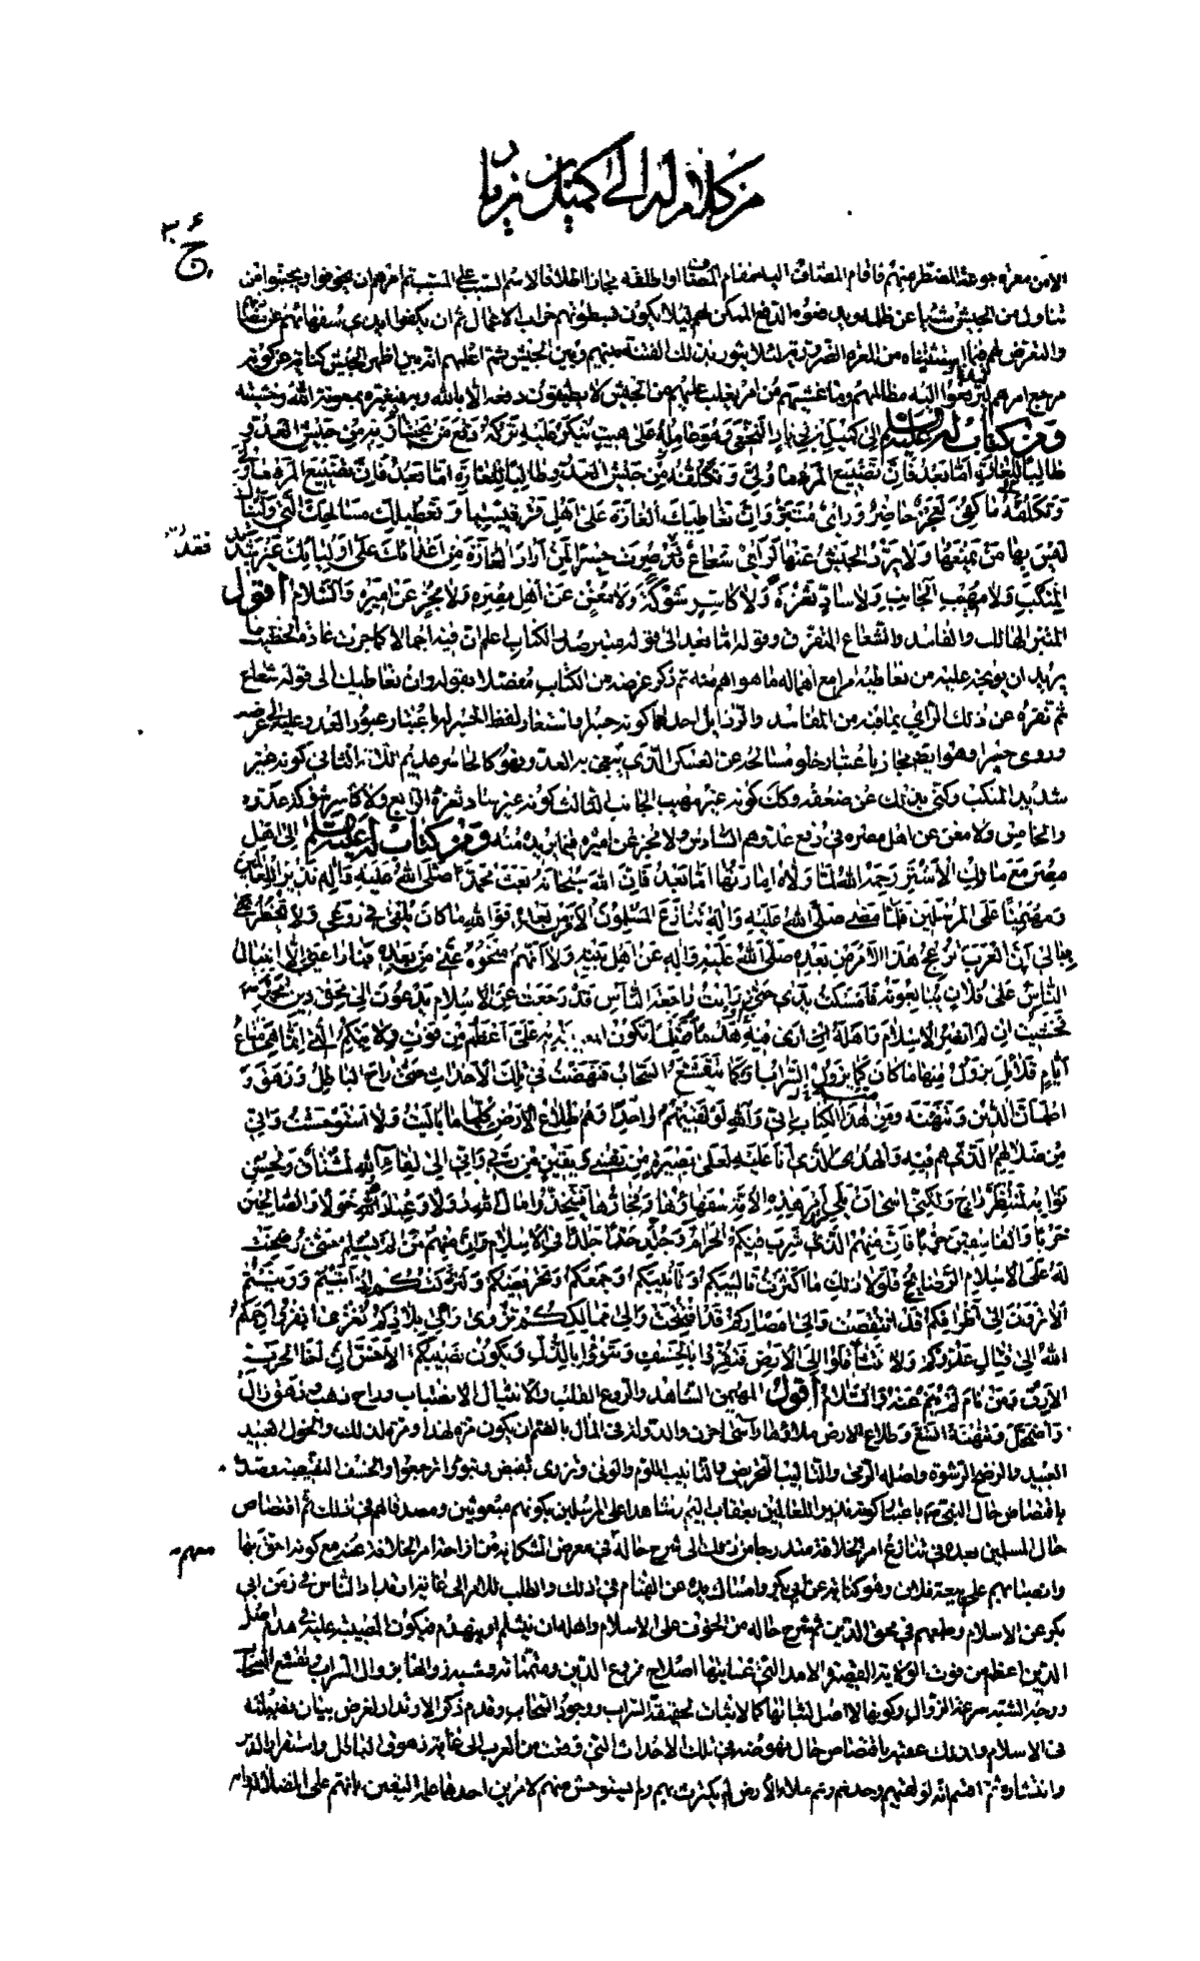 من كلام له الى كميل بن زياد
ج ٣
الا من معرة جوعة المضطر منهم فاقام المضاف اليه مقام المضاف او اطلقه مجازا اطلاقا لاسم السبب على المسبب ثم امرهم ان
تناول من الجيش شيئا عن ظلم ويدفعوه الدفع الممكن لهم لئلا يكون ثم ان يكفوا ايدي سفهائهم عن
والتعرض لهم فيما استثنيناه من المعرة الضرورية لئلا يثور بذلك الفتنة بينهم وبين الجيش ثم اعلمهم انه بين اظهر الجيش كناية عن كونه
مرجع امرهم ليرفعوا اليه مظالمهم وما غشيهم من امر يغلب عليهم من الجيش لا يطيقون دفعه الا بالله وبه فيغيره بمعونة الله وخشيته
ومن كتاب له عليه السلام الى كميل بن زياد النخعي وهو عامله على هيت ينكر عليه تركه دفع من يجتاز به من جيش العدو
طالبا للغارة اما بعد فان تضييع المرء ما ولي وتكلفه من جيش العدو طالبا للغارة اما بعد فان تضييع المرء ما ولي
وتكلفه ما كفي لعجز حاضر وراي متبر وان تعاطيك الغارة على اهل قرقيسيا وتعطيلك مسالحك التي وليناك
ليس بها من يمنعها ولا يرد الجيش عنها لراي شعاع فقد صرت جسرا لمن اراد الغارة من اعدائك على اوليائك غير شديد
فقد
المنكب ولا مهيب الجانب ولا ساد ثغرة ولا كاسر شوكة ولا مغن عن اهل مصره ولا مجز عن اميره والسلام اقول
المتبر الهالك والفاسد والشعاع المتفرق وقوله اما بعد الى قوله متبر صدر الكتاب اعلم ان فيه اجمالا كما جرت عادة الخطيب
يريد ان يوبخه عليه من تعاطيه امرا مع اهماله ما هو اهم منه ثم ذكر غرضه من الكتاب مفصلا بقوله وان تعاطيك الى قوله شعاع
ثم نفره عن ذلك الراي بما فيه من المفاسد والرذايل احدها كونه جسرا واستعار لفظ الجسر له باعتبار عبور العدو عليه الى غرضه
وروى حسرا وهو ايضا مجاز باعتبار خلو مسالحه عن العسكر الذي يبقى به العدو فهو كالحاسر عديم اللامة الثاني كونه غير
شديد المنكب وكنى بذلك عن ضعفه وكذلك كونه غير مهيب الجانب الثالث كونه غير ساد ثغرة الرابع ولا كاسر شوكة عدوه
والخامس ولا مغن عن اهل مصره في دفع عدوهم السادس ولا مجز عن اميره فيما يريده منه ومن كتاب له عليه السلام الى اهل
مصر مع مالك الاشتر رحمه الله لما ولاه امارتها اما بعد فان الله سبحانه بعث محمدا صلى الله عليه واله نذيرا للعالمين
ومهيمنا على المرسلين فلما مضى صلى الله عليه واله تنازع المسلمون الامر من بعده فوالله ما كان يلقى في روعي ولا يخطر
ببالي ان العرب تزعج هذا الامر من بعده صلى الله عليه واله عن اهل بيته ولا انهم منحوه عني من بعده فما راعني الا انثيال
الناس على فلان يبايعونه فامسكت يدي حتى رايت راجعة الناس قد رجعت عن الاسلام يدعون الى محق دين محمد
فخشيت ان لم انصر الاسلام واهله ان ارى فيه ثلما او هدما تكون المصيبة به علي اعظم من فوت ولايتكم التي انما هي متاع
ايام قلائل يزول منها ما كان كما يزول السراب وكما يتقشع السحاب فنهضت في تلك الاحداث حتى زاح الباطل وزهق و
اطمان الدين وتنهنه ومن هذا الكتاب اني والله لو لقيتهم واحدا وهم طلاع الارض كلها ما باليت ولا استوحشت واني
من ضلالهم الذي هم فيه والهدى الذي انا عليه لعلى بصيرة من نفسي ويقين من ربي واني الى لقاء الله لمشتاق ولحسن
ثوابه لمنتظر راج ولكني اسى ان يلي امر هذه الامة سفهاؤها وفجارها فيتخذوا مال الله دولا وعباده خولا والصالحين
حربا والفاسقين حزبا فان منهم الذي شرب فيكم الحرام وجلد حدا في الاسلام وان منهم من لم يسلم حتى رضخت
له على الاسلام الرضائخ فلولا ذلك ما اكثرت تاليبكم وتانيبكم وجمعكم وتحريضكم ولتركتكم اذ ابيتم وونيتم
الا ترون الى اطرافكم قد انتقصت والى امصاركم قد افتتحت والى ممالككم تزوى والى بلادكم تغزى انفروا رحمكم
الله الى قتال عدوكم ولا تثاقلوا الى الارض فتقروا بالخسف وتبوؤا بالذل ويكون نصيبكم الاخس ان اخا الحرب
الارق ومن نام لم ينم عنه والسلام اقول المهيمن الشاهد والروع القلب والانثيال الانصباب وزاح ذهب وزهق زال
واضمحل وتنهنه اتسع وطلاع الارض ملاؤها واسى احزن والدولة في المال بالضم ان يكون مرة لهذا ومرة لذلك والخول العبيد
العبيد والرضخ الرشوة واصله الرمي والتاليب التحريض والتانيب اللوم والوني وتزوى تقبض وتبوؤا ترجعوا والخسف النقيصة وصدر
باقتصاص حال النبي ص باعتبار كونه نذيرا للعالمين بعقاب اليم وشاهدا على المرسلين بكونهم مبعوثين ومصدقا لهم في ذلك ثم اقتصاص
حال المسلمين بعده في تنازع امر الخلافة مندرجا من ذلك الى شرح حاله في معرض الشكاية من اخذ امر الخلافة عنه مع كونه احق بها
منهم
وانصبابهم على بيعة فلان وهو كناية عن ابي بكر وامساك يده عن القيام في ذلك والطلب للامر الى غاية ارتداد الناس في زمن ابي
بكر عن الاسلام وطمعهم في محق الدين ثم شرح حاله من الخوف على الاسلام واهله ان ينثلم او ينهدم فيكون المصيبة عليه في هدم اصل
الدين اعظم من فوت الولاية القصيرة الامد التي غايتها اصلاح فروع الدين ومتمماته وشبه زوالها بزوال السراب وتقشع السحاب
ووجه الشبه سرعة الزوال وكونها لا اصل لثباتها كما لا ثبات لحقيقة السراب ووجود السحاب وقدم ذكر الارتداد لغرض بيان فضيلته
في الاسلام ولذلك عقبه باقتصاص حال نهوضه في تلك الاحداث التي وقعت من العرب الى غاية زهوق الباطل واستقرار الدين
وانتشاره ثم اقسم انه لو لقيهم وحده وهم ملاء الارض لم يكترث بهم ولم يستوحش منهم لامرين احدهما علمه اليقين بانهم على الضلال